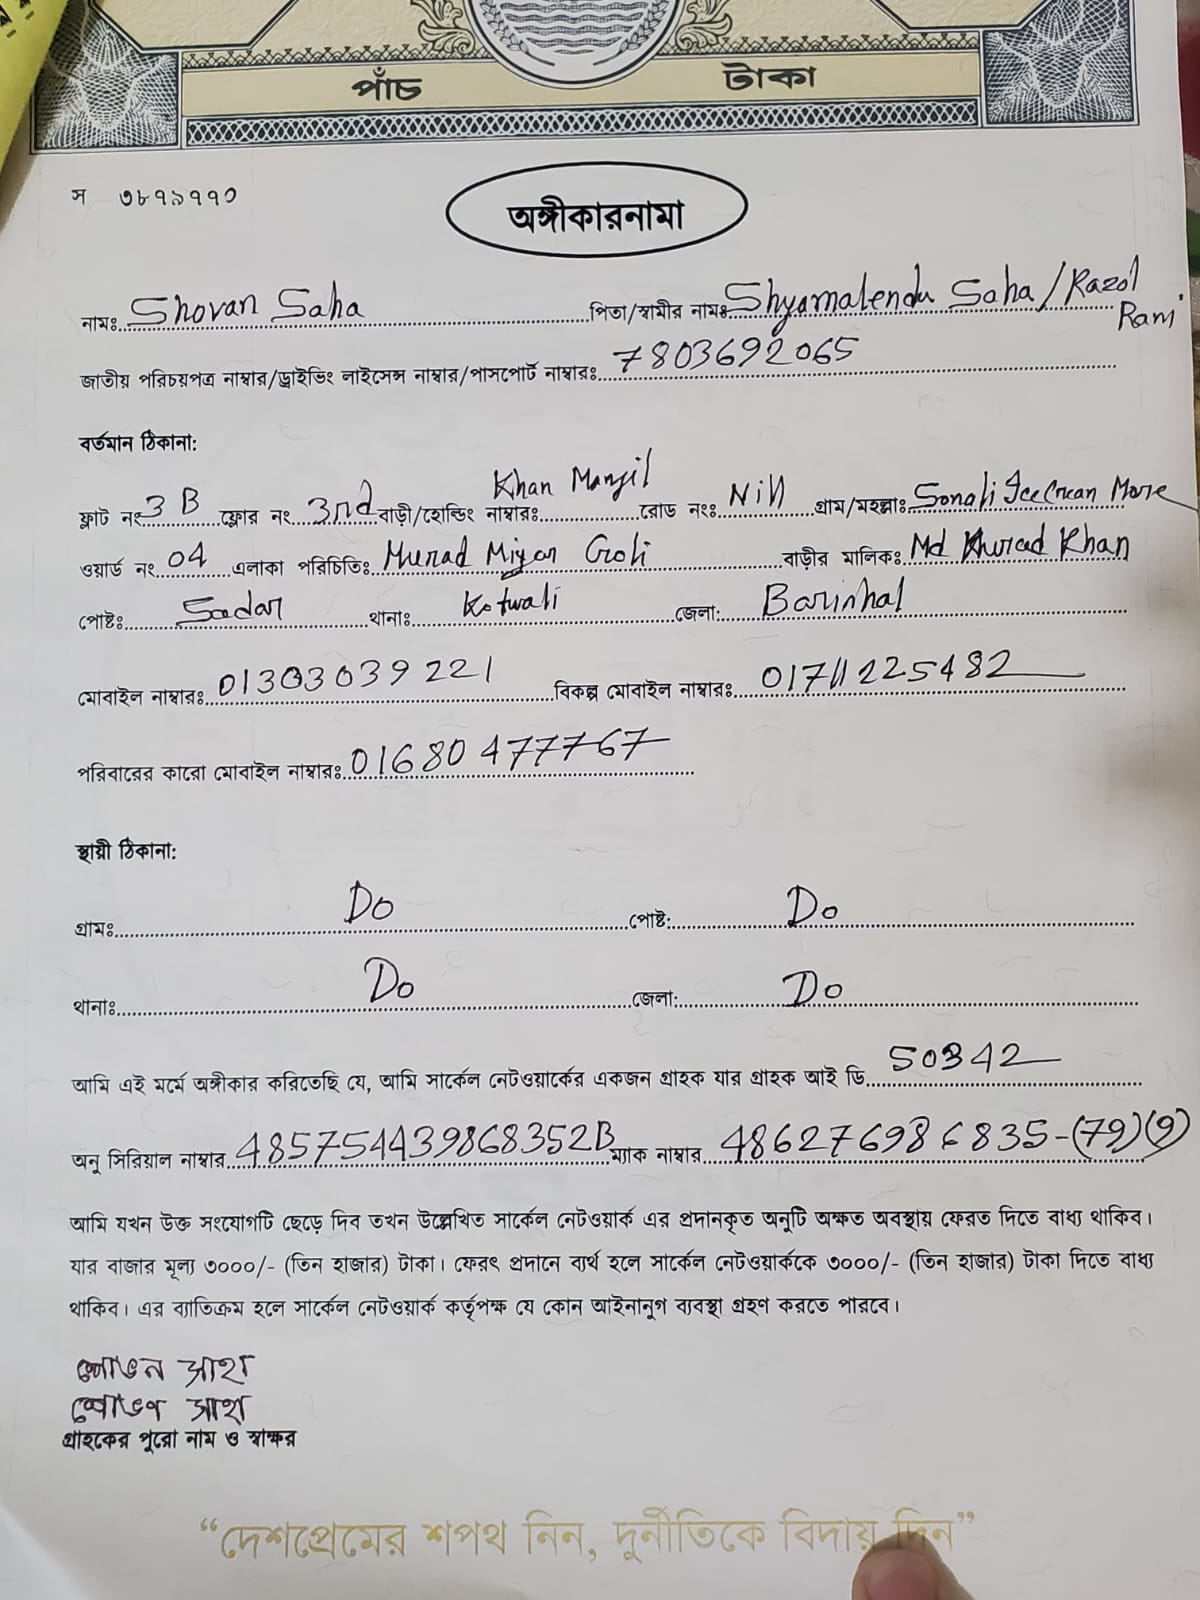 পাঁচ টাকা
স ৩৮৭১৭৭০
অঙ্গীকারনামা
নামঃ Shovan Saha পিতা/স্বামীর নামঃ Shyamalendu Saha / Razol Rani
জাতীয় পরিচয়পত্র নাম্বার/ড্রাইভিং লাইসেন্স নাম্বার/পাসপোর্ট নাম্বারঃ 7803692065
বর্তমান ঠিকানা:
ফ্লাট নং 3 B ফ্লোর নং 3rd বাড়ী/হোল্ডিং নাম্বারঃ Khan Manjil রোড নংঃ Nill গ্রাম/মহল্লাঃ Sonali Icecream More
ওয়ার্ড নং 04 এলাকা পরিচিতিঃ Murad Miyan Goli বাড়ীর মালিকঃ Md Khan
পোষ্টঃ Sadar থানাঃ Kotwali জেলা: Barishal
মোবাইল নাম্বারঃ 01303039221 বিকল্প মোবাইল নাম্বারঃ 01711225482
পরিবারের কারো মোবাইল নাম্বারঃ 01680477767
স্থায়ী ঠিকানা:
গ্রামঃ Do পোষ্ট: Do
থানাঃ Do জেলা: Do
আমি এই মর্মে অঙ্গীকার করিতেছি যে, আমি সার্কেল নেটওয়ার্কের একজন গ্রাহক যার গ্রাহক আই ডি 50342
অনু সিরিয়াল নাম্বার 485754439868352B ম্যাক নাম্বার 486276986835-(79)(9)
আমি যখন উক্ত সংযোগটি ছেড়ে দিব তখন উল্লেখিত সার্কেল নেটওয়ার্ক এর প্রদানকৃত অনুটি অক্ষত অবস্থায় ফেরত দিতে বাধ্য থাকিব।
যার বাজার মূল্য ৩০০০/- (তিন হাজার) টাকা। ফেরৎ প্রদানে ব্যর্থ হলে সার্কেল নেটওয়ার্ককে ৩০০০/- (তিন হাজার) টাকা দিতে বাধ্য
থাকিব। এর ব্যাতিক্রম হলে সার্কেল নেটওয়ার্ক কর্তৃপক্ষ যে কোন আইনানুগ ব্যবস্থা গ্রহণ করতে পারবে।
শোভন সাহা
শোভণ সাহা
গ্রাহকের পুরো নাম ও স্বাক্ষর
“দেশপ্রেমের শপথ নিন, দুর্নীতিকে বিদায় দিন”